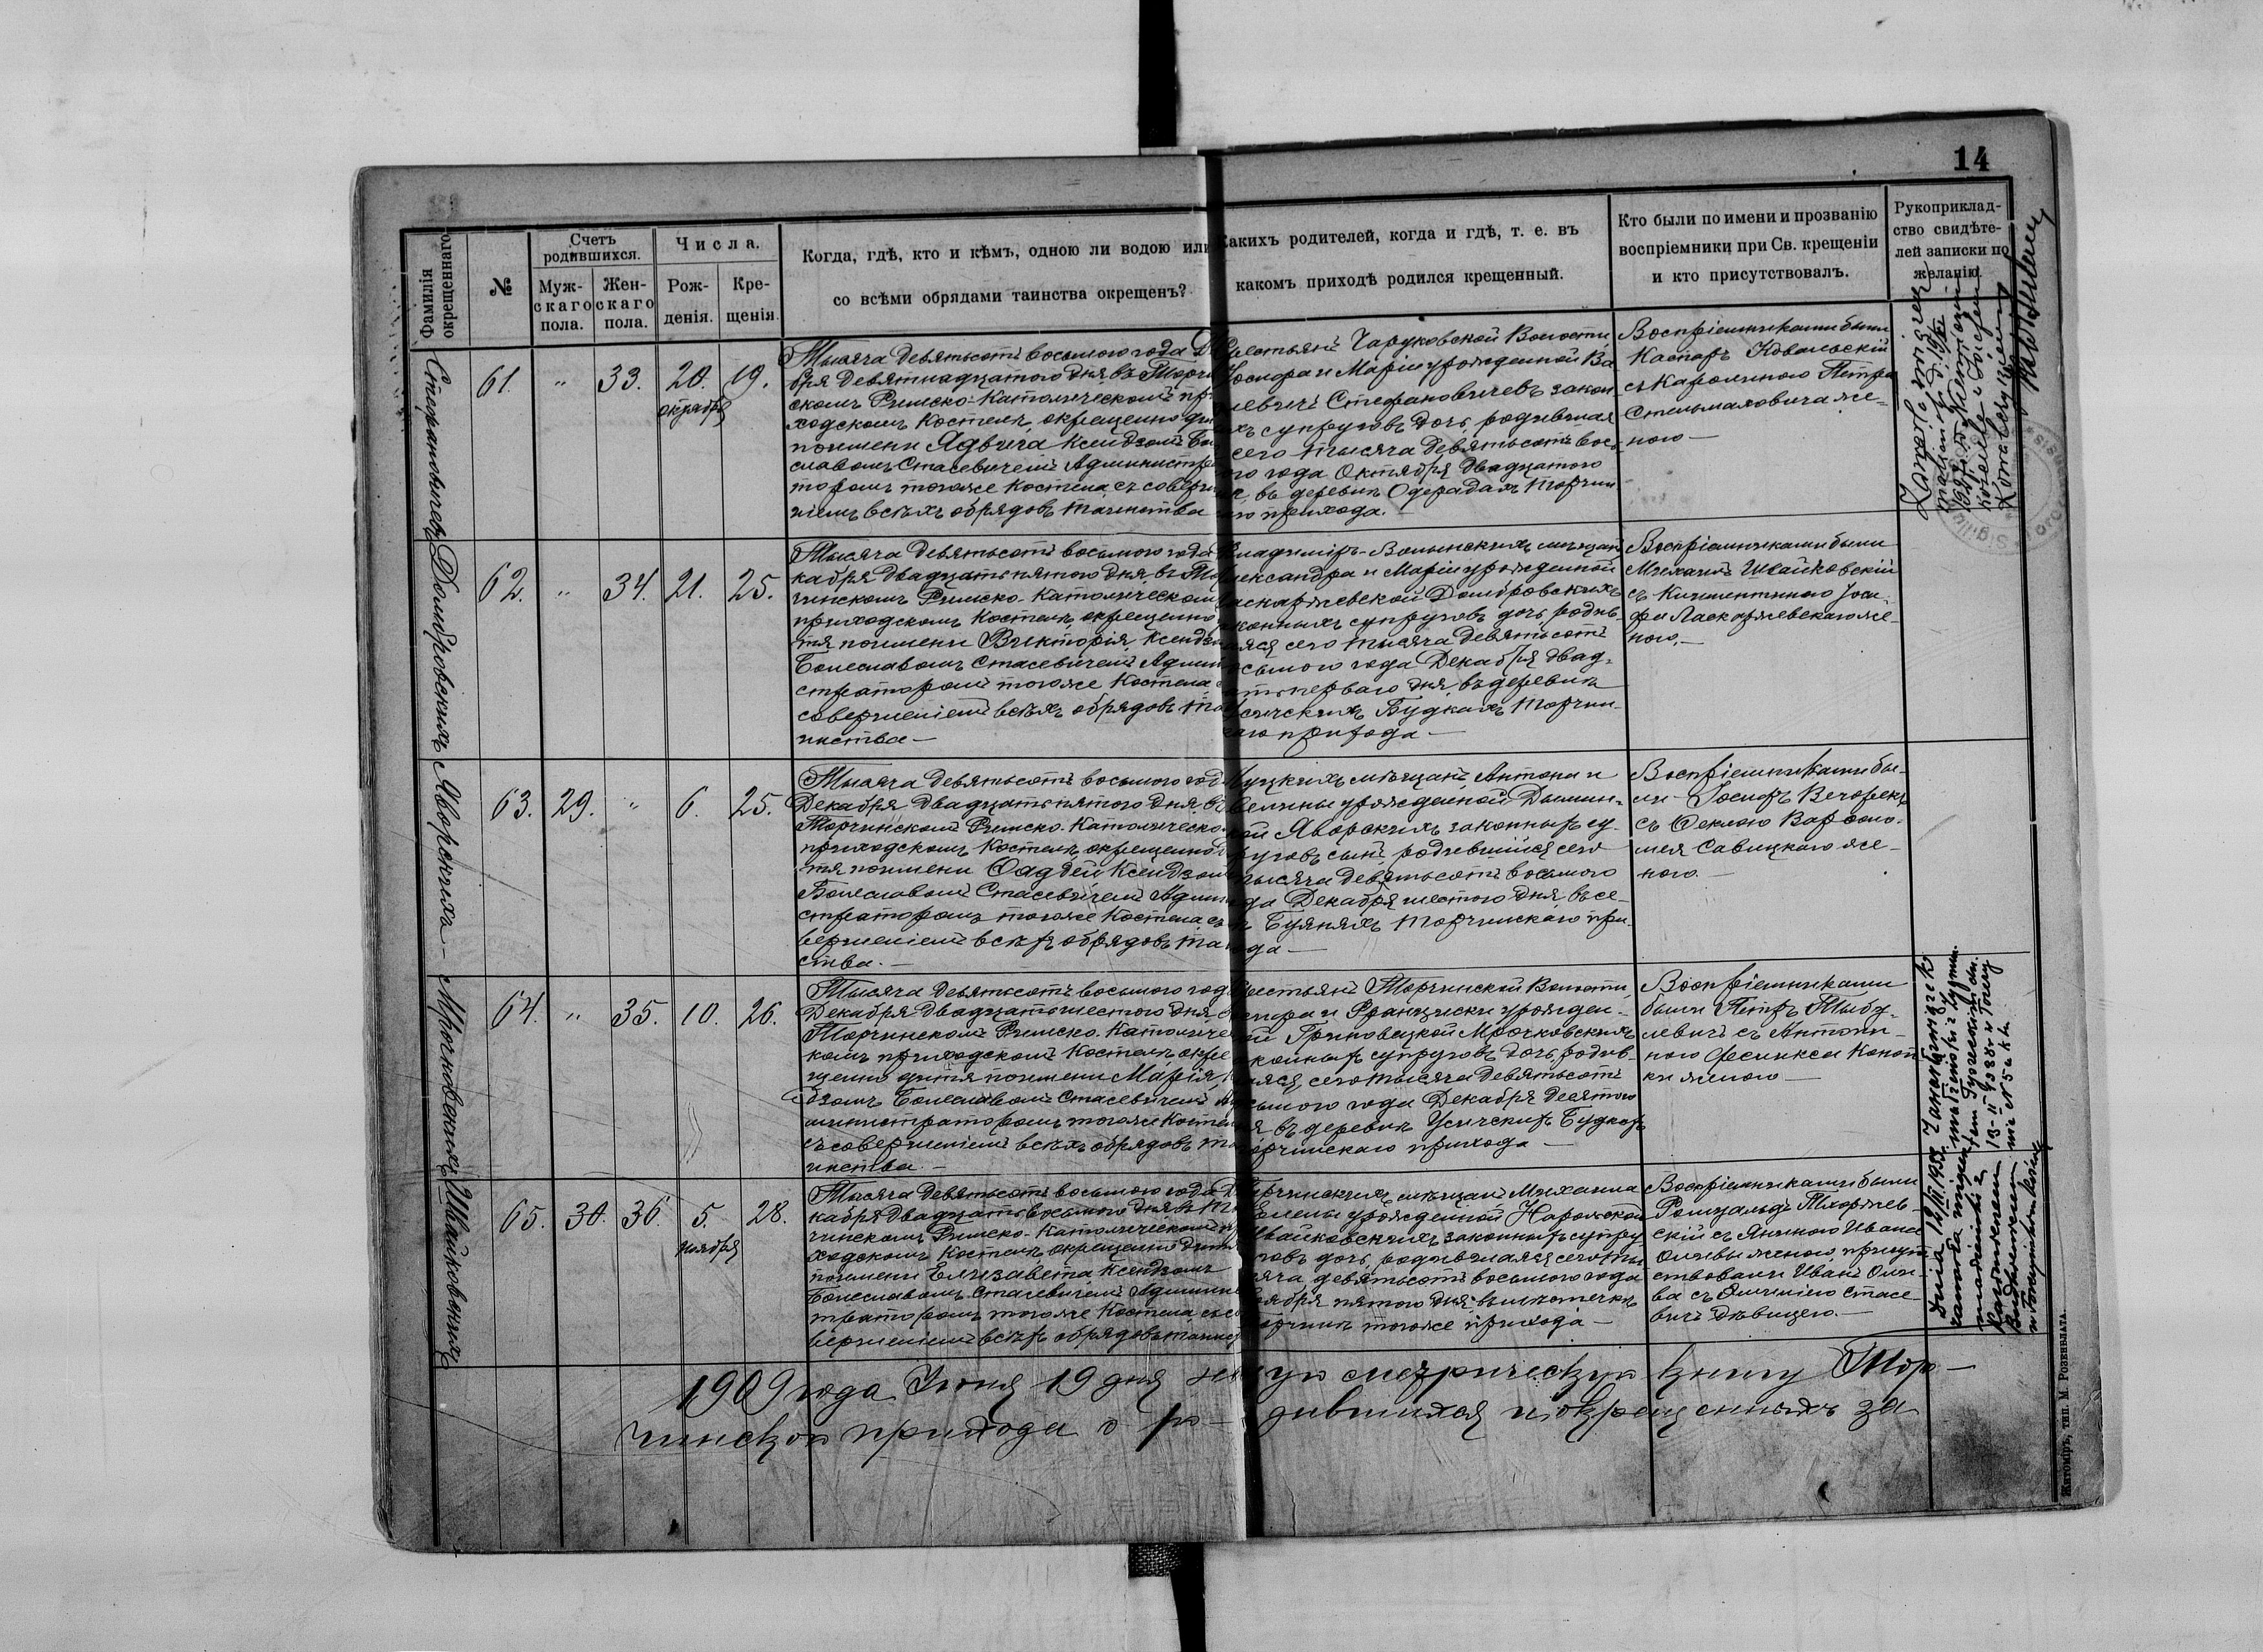 14
Фамилія окрещеннаго.
№
Счетъ родившихся.
Муж-скаго пола.
Жен-скаго пола.
Числа.
Рож-денія.
Кре-щенія.
Когда, гдѣ, кто и кѣмъ, одною ли водою или
со всѣми обрядами таинства окрещенъ?
Какихъ родителей, когда и гдѣ, т. е. въ
какомъ приходѣ родился крещенный.
Кто были по имени и прозванію
воспріемники при Св. крещеніи
и кто присутствовалъ.
Рукоприклад-
ство свидѣте-
лей записки по
желанію.
Стефановичевъ
61. " 33. 20. октября 19.
Тысяча девятьсотъ восьмого года Д
бря девятнадцатого дня, въ Торчи
скомъ Римско-Католическомъ пр
ходскомъ Костелѣ, окрещено ди
по имени Ядвига Ксендзомъ Бо
славомъ Стасевичемъ Администра
торомъ тогоже Костела, съ соверше
ніемъ всѣхъ обрядовъ таинства
Крестьянъ Чаруковской Волости
Іосифа и Маріи урожденной Ва
левичъ Стефановичевъ закон
хъ супруговъ дочь, родившая
сего тысяча девятьсотъ вос
го года Октября двадцатого
въ деревнѣ Одерадахъ Торчин
го прихода.
Воспріемниками были
Каспаръ Ковальскій
съ Каролиною Петра
Стельмаховича же-
ною —
Домбровскихъ
62. " 34. 21. 25.
Тысяча девятьсотъ восьмого года
кабря двадцать пятого дня, въ То
чинскомъ Римско-Католическомъ
приходскомъ Костелѣ, окрещено
тя по имени Викторія, Ксендзо
Болеславомъ Стасевичемъ Админи
страторомъ тогоже Костела
совершеніемъ всѣхъ обрядовъ та
инства —
Владиміръ-Волынскихъ мѣщанъ
Александра и Маріи урожденной
Ласкаржевской Домбровскихъ
законныхъ супруговъ дочь, родив-
шаяся сего тысяча девятьсотъ
осьмого года Декабря двад-
ать перваго дня, въ деревнѣ
Усичскихъ Будкахъ Торчин-
каго прихода —
Воспріемниками были
Михаилъ Швайковскій
съ Климентиною Іоси-
фа Ласкаржевскаго же-
ною. —
Яворскихъ —
63. 29. " 6. 25.
Тысяча девятьсотъ восьмого год
Декабря двадцать пятого дня, въ
Торчинскомъ Римско-Католическо
приходскомъ Костелѣ, окрещено
тя по имени Фаддей Ксендзом
Болеславомъ Стасевичемъ Админи
страторомъ тогоже Костела, съ
вершеніемъ всѣхъ обрядовъ та
ства. —
Луцкихъ мѣщанъ, Антона и
велины урожденной Дымин-
кой Яворскихъ законныхъ су-
руговъ сынъ, родившійся сего
тысяча девятьсотъ восьмого
да Декабря шестого дня, въ се-
Буянахъ Торчинскаго при-
ода —
Воспріемниками бы-
ли Іосифъ Вечорекъ
съ Феклою Варфоло-
мея Савицкаго же-
ною. —
Мрочковскихъ
64. " 35. 10. 26.
Тысяча девятьсотъ восьмого год
Декабря двадцать шестого дня
Торчинскомъ Римско-Католиче
комъ приходскомъ Костелѣ окре
щено дитя по имени Марія,
дзомъ Болеславомъ Стасевичемъ
министраторомъ тогоже Костел
съ совершеніемъ всѣхъ обрядовъ та
инства. —
рестьянъ Торчинской Волости,
и Францишки урожден-
Гриновецкой Мрочковскихъ
конныхъ супруговъ дочь, родив-
аяся сего тысяча девятьсотъ
сьмого года Декабря десятого
я въ деревнѣ Усичскихъ Будкахъ
орчинскаго прихода —
Воспріемниками
были Петръ Тыбу-
левичъ съ Антони-
ною Феликса Коноп
ки женою —
Швайковскихъ
65. 30. 36. 5. ноября 28.
Тысяча девятьсотъ восьмого года Д
кабря двадцать восьмого дня въ То
чинскомъ Римско-Католическомъ п
ходскомъ Костелѣ, окрещено дитя
по имени Елизавета Ксендзомъ
Болеславомъ Стасевичемъ Админи
траторомъ тогоже Костела, съ со
вершеніемъ всѣхъ обрядовъ таинст
орчинскихъ мѣщанъ Михаила
елены урожденной Нарольской
Швайковскихъ законныхъ супру
говъ дочь, родившаяся сего ты
яча девятьсотъ восьмого года
оября пятого дня, въ мѣстечкѣ
орчинѣ тогоже прихода —
Воспріемниками были
Ромуальдъ Тхоржев-
скій съ Яниною Ивана
Оливы женою, присут
ствовали Иванъ Оли-
ва съ Стасе-
вичъ дѣвицею. —
małżeński
Dnia 12/III 1938. Zaświadczek
zawarła związek małżeński
małżeński z
Kazimierzem 13-II-1938 r.
№ 5
1909 года Іюня 19 дня метрическую книгу Тор-
чинского прихода о ро-дившихся и окрещенныхъ за
Житоміръ, тип. М. Розенблата.